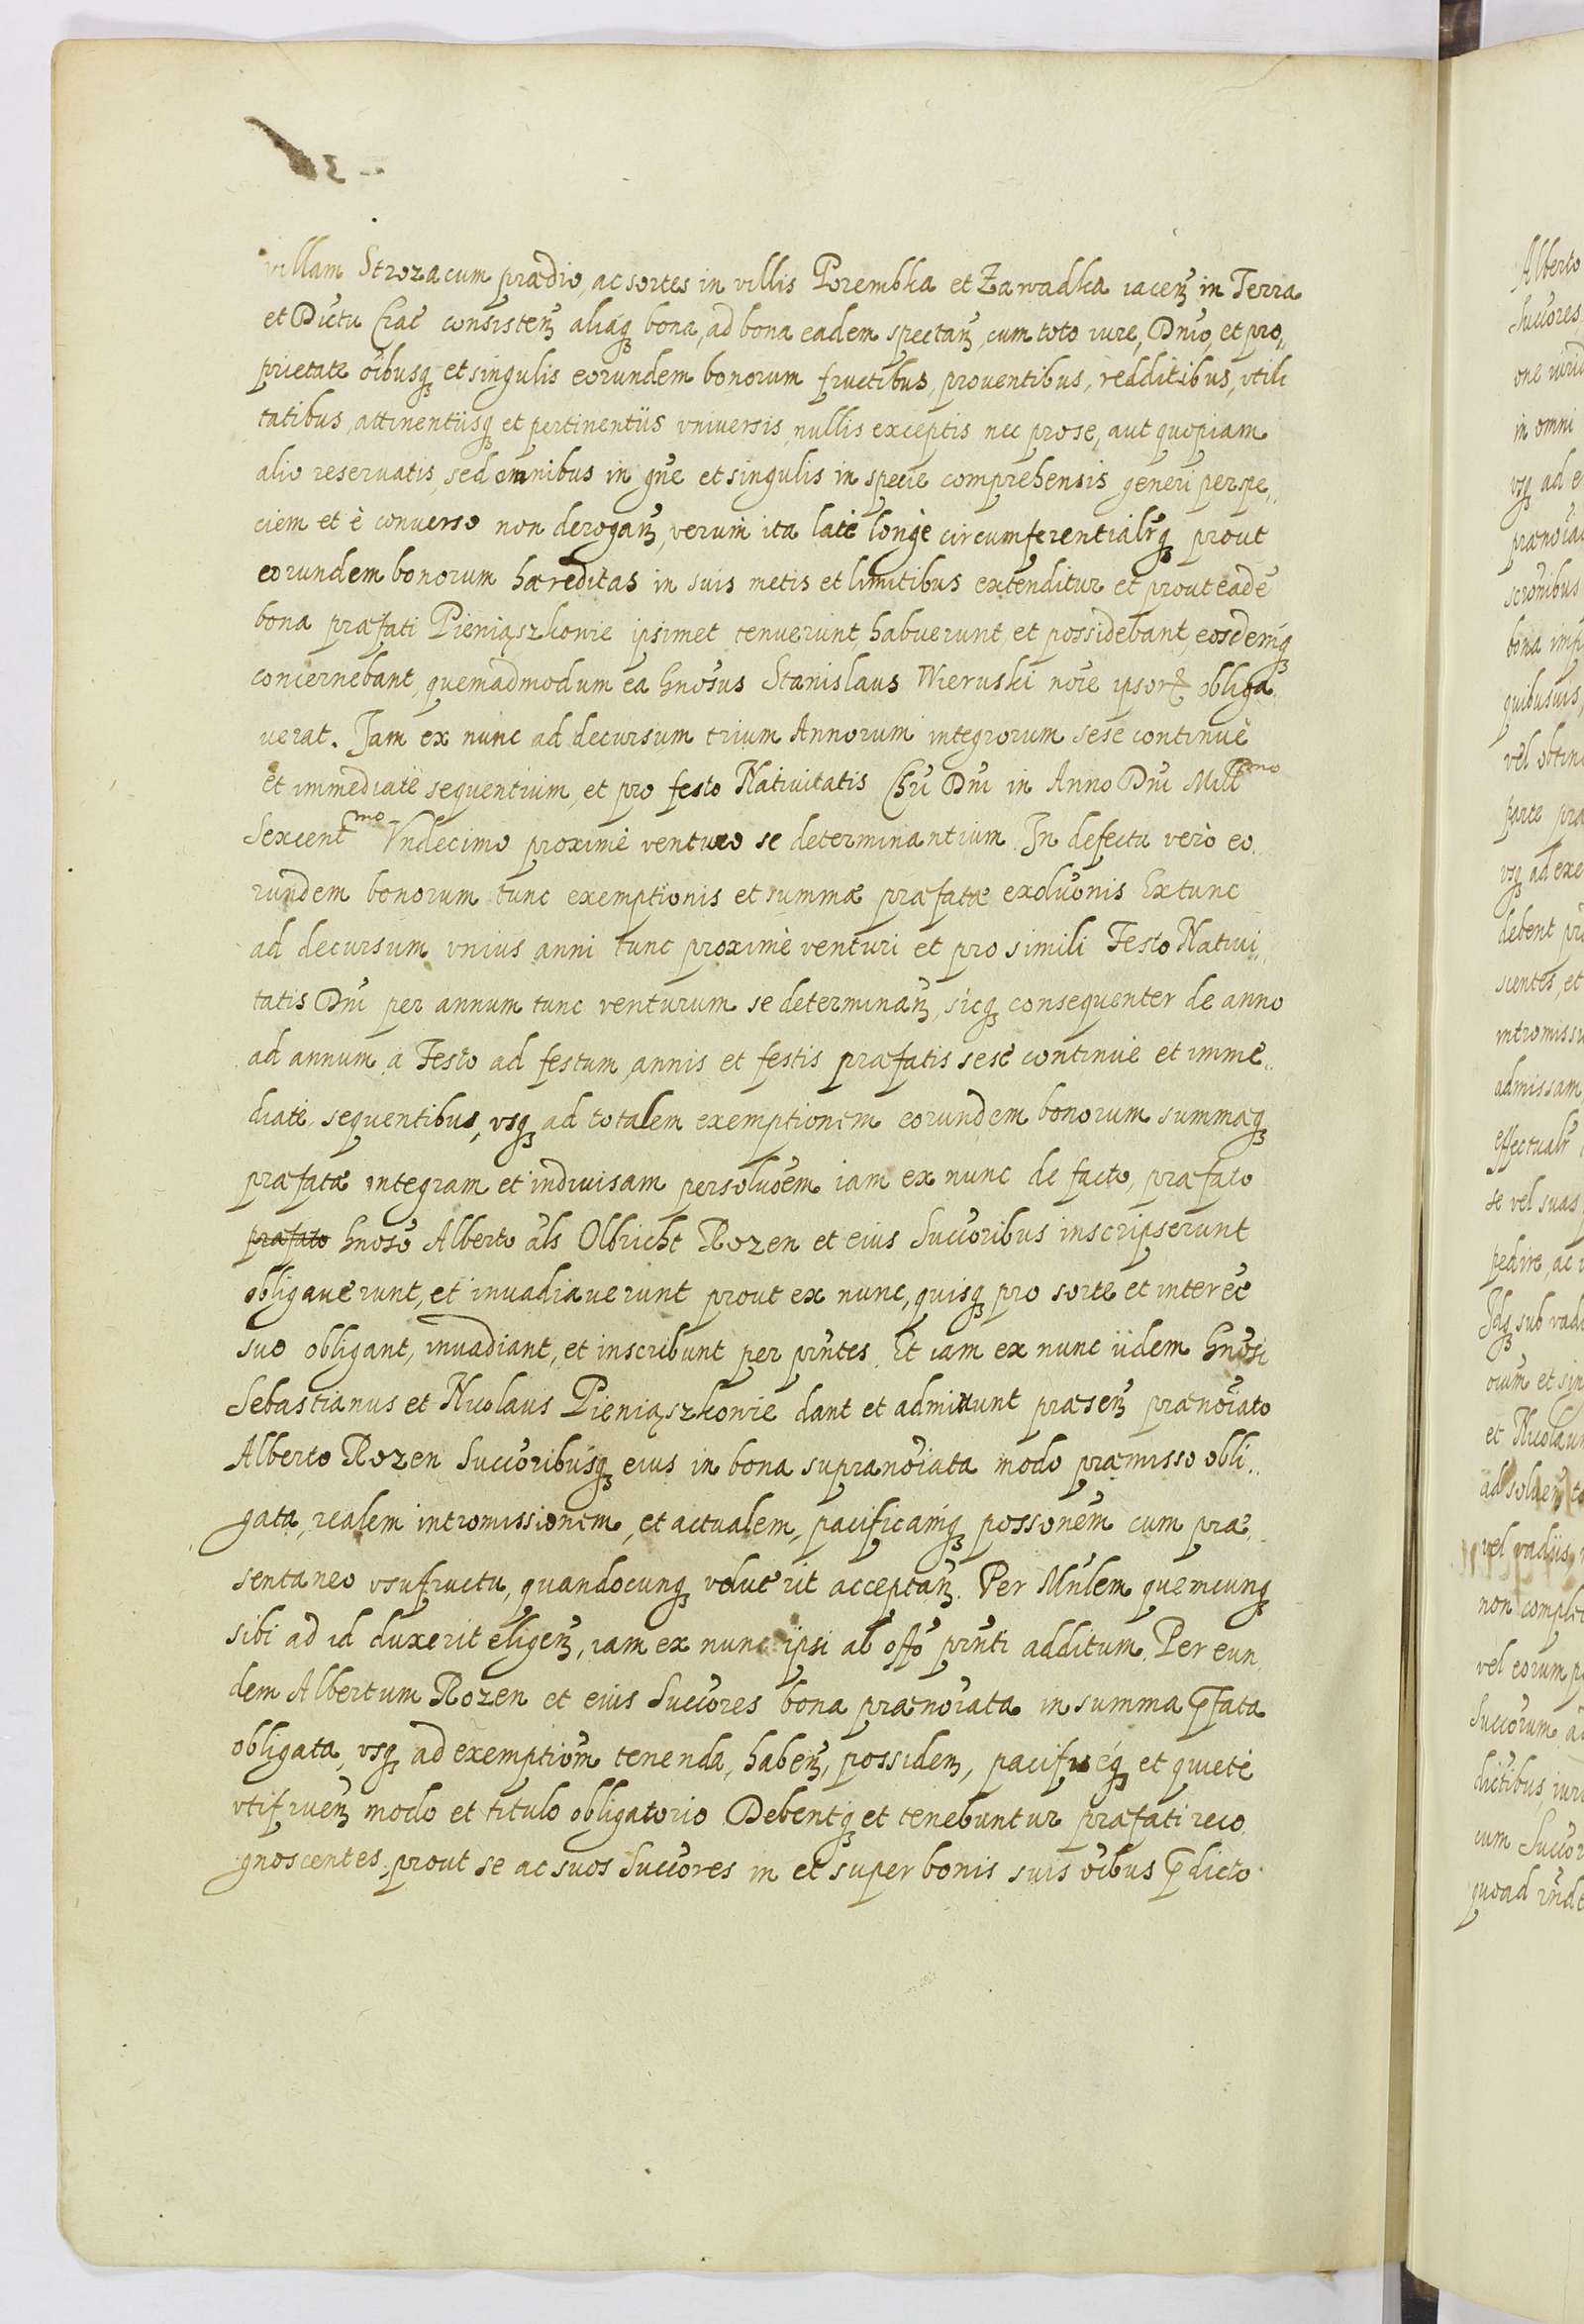 villam Stroza cum prædio, ac sortes in villis Porembka et Zawadka iaceñ in Terra
et Dictu Crac̃ consisteñ aliaq̃ bona, ad bona eadem spectañ, cum toto iure, Dnĩo, et pro„
prietate oĩbusq̃ et singulis eorundem bonorum fructibus, prouentibus, redditibus, vtili
tatibus, attinentiisq̃ et pertinentiis vniuersis, nullis exceptis nec pro se, aut quopiam
alio reseruatis, sed omnibus in gñe et singulis in specie comprehensis generi per spe„
ciem et è conuerso non derogañ, verum ita latè longè circumferentialr̃q̃ prout
eorundem bonorum hæreditas in suis metis et limitibus extenditur et prout eadẽ
bona præfati Pieniąszkowie ipsimet tenuerunt, habuerunt, et possidebant, eosdemq̃
concernebant, quemadmodum ea Gñosus Stanislaus Wieruski noĩe ipsoꝝ obliga„
uerat. Jam ex nunc ad decursum trium Annorum integrorum sese continuè
et immediatè sequentium, et pro festo Natiuitatis Chrĩ Dnĩ in Anno Dnĩ Mill̃mo
Sexcent̃mo Vndecimo proximè venturo se determinantium. In defectu verò eo„
rundem bonorum tunc exemptionis et summæ præfatæ exoluõnis Extunc
ad decursum vnius anni tunc proximè venturi et pro simili Festo Natiui„
tatis Dnĩ per annum tunc venturum se determinañ, sicq̃ consequenter de anno
ad annum à Festo ad festum, annis et festis præfatis sese continuè et imme„
diatè sequentibus, vsq̃ ad totalem exemptionem eorundem bonorum summæq̃
præfatæ integram et indiuisam persoluõem iam ex nunc de facto, præfato
præfato Gñoso Alberto al̃s Olbricht Rozen et eius Succõribus inscripserunt
obligauerunt, et inuadiauerunt prout ex nunc, quisq̃ pro sorte et interẽe
suo obligant, inuadiant, et inscribunt per pñtes. Et iam ex nunc iidem Gñosi
Sebastianus et Nicolaus Pieniąszkowie dant et admittunt præseñ prænoĩato
Alberto Rozen Succõribusq̃ eius in bona supranoĩata modo præmisso obli„
gata, realem intromissionem, et actualem, pacificamq̃ possõnem cum præ„
sentaneo vsufructu, quandocunq̃ voluerit acceptañ. Per Mñlem quemcunq̃
sibi ad id duxerit eligeñ, iam ex nunc ipsi ab offõ pñti additum. Per eun„
dem Albertum Rozen et eius Succõres bona prænoĩata in summa p̃fata
obligata, vsq̃ ad exemptiõm tenenda, habeñ, possideñ, pacificèq̃ et quietè
vtifrueñ modo et titulo obligatorio. Debentq̃ et tenebuntur præfati reco„
gnoscentes prout se ac suos Succõres in et super bonis suis oĩbus p̃dicto